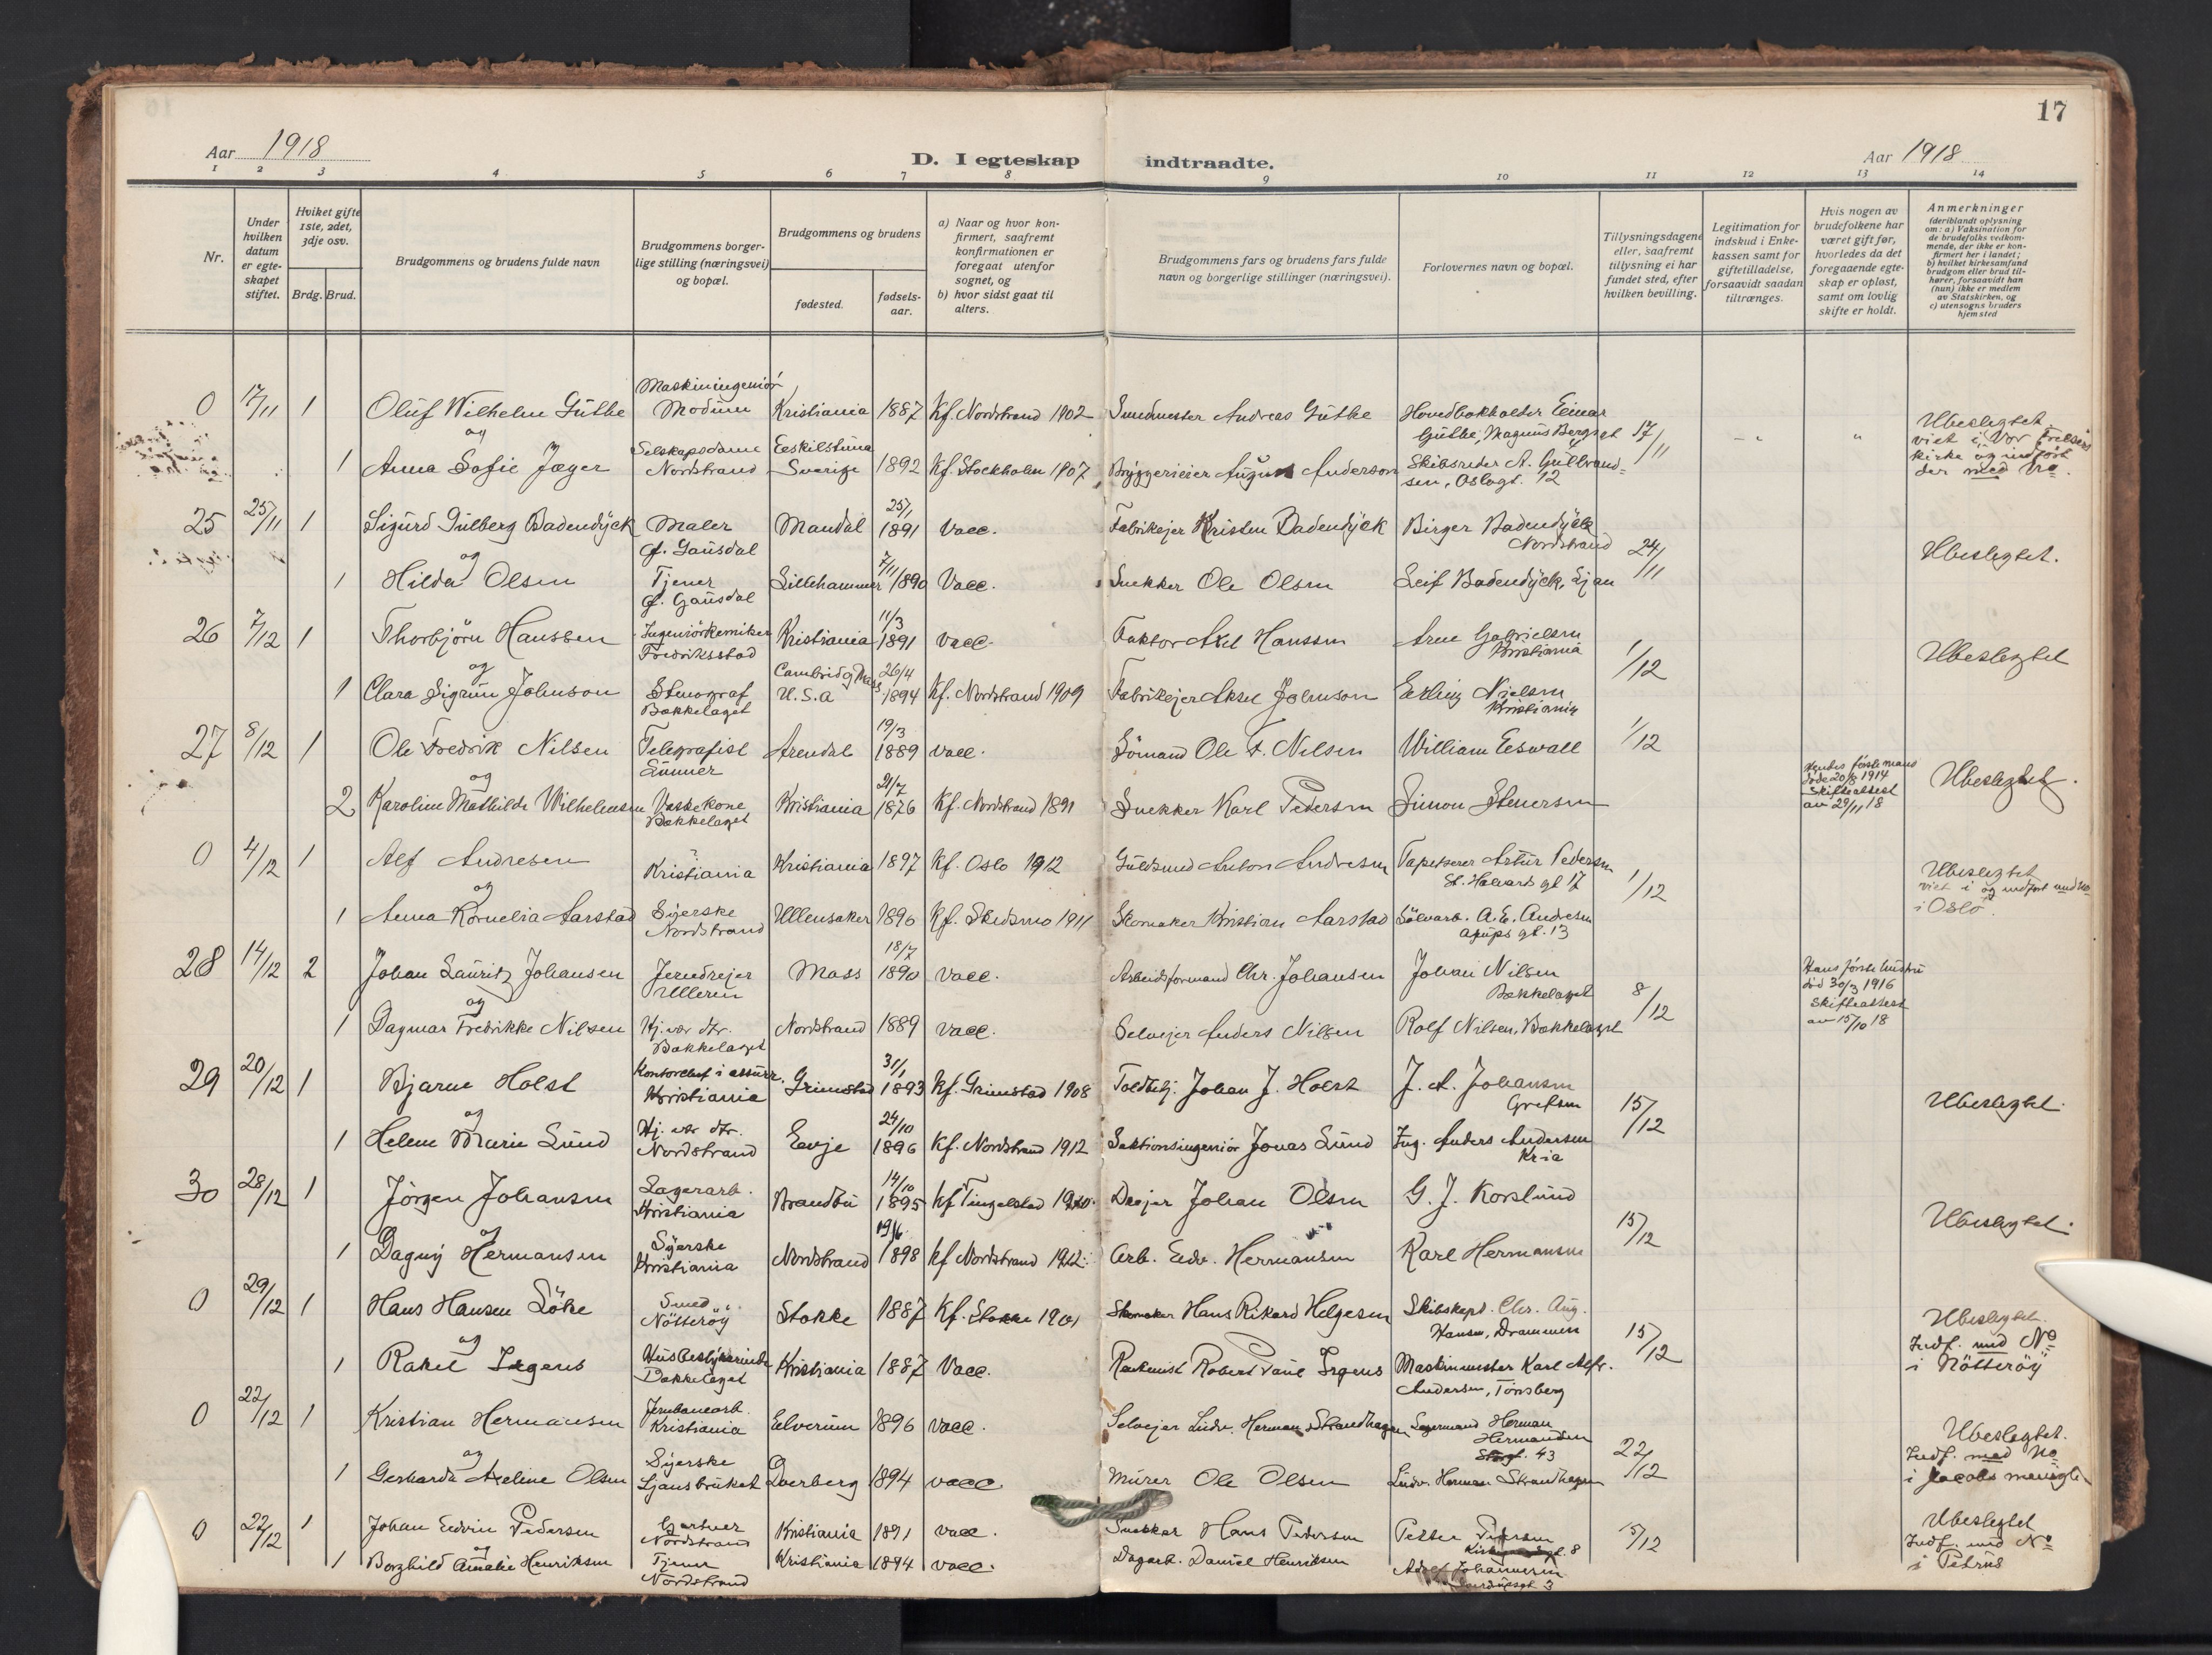 17
Aar 1918
D. I egteskap indtraadte.
Aar 1918
1 2 3 4 5 6 7 8 9 10 11 12 13 14
Nr.
Under hvilken datum er egteskapet stiftet.
Hviket gifte 1ste, 2det, 3dje osv.
Brdg. Brud.
Brudgommens og brudens fulde navn
Brudgommens borgerlige stilling (næringsvei) og bopæl.
Brudgommens og brudens
fødested.
fødselsaar.
a) Naar og hvor konfirmert, saafremt konfirmationen er foregaat utenfor sognet, og
b) hvor sidst gaat til alters.
Brudgommens fars og brudens fars fulde navn og borgerlige stillinger (næringsvei).
Forlovernes navn og bopæl.
Tillysningsdagene eller, saafremt tillysning ei har fundet sted, efter hvilken bevilling.
Legitimation for indskud i Enkekassen samt for giftetilladelse, forsaavidt saadan tiltrænges.
Hvis nogen av brudefolkene har været gift før, hvorledes da det foregaaende egteskap er opløst, samt om lovlig skifte er holdt.
Anmerkninger
(deriblandt oplysning om: a) Vaksination for de brudefolks vedkommende, der ikke er konfirmert her i landet; b) hvilket kirkesamfund brudgom eller brud tilhører, forsaavidt han (hun) ikke er medlem av Statskirken, og c) utensogns bruders hjemsted
0 17/11 1 Oluf Wilhelm Guthe Maskiningeniör Modum Kristiania 1887 Kf. Nordstrand 1902 Andreas Guthe Hovedbokholder Einar Guthe, Magnus Bergsgt 17/11
og
1 Anna Sofie Jæger Selskapsdame Nordstrand Eskilstuna Sverige 1892 Kf. Stockholm 1907 Bryggerieier August Anderson Skibsreder A. Gulbrandsen, Oslogt. 12
Ubeslegtet viet i Vor Frelsers kirke og indført der med No.
25 25/11 1 Sigurd Gulberg Badendyck Maler Ø. Gausdal Mandal 25/1 1891 Vacc. Fabrikejer Kristen Badendyck Birger Badendyck Nordstrand 24/11
og
1 Hilda Olsen Tjener Ø. Gausdal Lillehammer 7/11 1890 Vacc. Snekker Ole Olsen Leif Badendyck, Ljan
Ubeslegtet.
26 7/12 1 Thorbjörn Hanssen Ingeniörkemiker Fredriksstad Kristiania 11/3 1891 vacc. Faktor Axel Hanssen Arne Gabrielsen Kristiania 1/12
og
1 Clara Sigrun Johnson Stenograf Bækkelaget Cambridg Mass U.S.a 26/4 1894 Kf. Nordstrand 1909 Fabrikejer Aksel Johnson Erling Nielsen Kristiania
Ubeslegtet
27 8/12 1 Ole Fredrik Nilsen Telegrafist Arendal 19/3 1889 vacc. Sömand Ole F. Nilsen William Eswall 1/12
og
2 Karoline Mathilde Wilhelmsen Vaskekone Bækkelaget Kristiania 21/7 1876 Kf. Nordstrand 1891 Snekker Karl Pedersen Simon Stenersen
Hendes förste mand döde 20/8 1914 Skifteattest av 29/11 18
Ubeslegtet.
0 4/12 1 Alf Andresen Kristiania Kristiania 1897 Kf. Oslo 1912 Guldsmed Anton Andresen Tapetserer Artur Pedersen St. Halvards gt 17 1/12
og
1 Anna Kornelia Aarstad Syerske Nordstrand Ullensaker 1896 Kf. Skedsmo 1911 Skomaker Kristian Aarstad Sölvarb. A.E. Andresen gt. 13
Ubeslegtet viet i og indført med No i Oslo.
28 14/12 2 Johan Lauritz Johansen Jerndrejer Ullern Moss 18/7 1890 vacc. Arbeidsformand Chr. Johansen Johan Nilsen Bækkelaget 8/12
og
1 Dagmar Fredrikke Nilsen Hj. vær. dtr. Bækkelaget Nordstrand 1889 vacc. Selvejer Anders Nilsen Rolf Nilsen, Bækkelaget
Hans förste hustru död 30/3 1916 Skifteattest av 15/10 18
29 20/12 1 Bjarne Holst Kontorchef i assur. Kristiania Grimstad 31/1 1893 Kf. Grimstad 1908 Toldbetj. Johan J. Holst J. A. Johansen Grefsen 15/12
og
1 Helene Marie Lund Hj. vær. dtr. Nordstrand Evje 24/10 1896 Kf. Nordstrand 1912 Sektionsingeniör Jonas Lund Ing. Anders Andersen Kr-ia
Ubeslegtet.
30 28/12 1 Jörgen Johansen Lagerarb. Kristiania Brandbu 14/10 1895 Kf Tingelstad 1910. Drejer Johan Olsen G. J. Korslund 15/12
og
1 Dagny Hermansen Syerske Kristiania Nordstrand 1898 Kf Nordstrand 1912. Arb. Edv. Hermansen Karl Hermansen
Ubeslegtet.
0 29/12 1 Hans Hansen Löke Smed Nötteröy Stokke 1887 Kf. Stokke 1901 Skomaker Hans Rikard Helgesen Skibskapt. Chr. Aug. Hansen, Drammen 15/12
og
1 Rakel Irgens Husbestyrerinde Bækkelaget Kristiania 1887 Vacc. Robert Paul Irgens Maskinmester Karl Alfr. Andersen, Tönsberg
Ubeslegtet. Indf. med No i Nötteröy
0 22/12 1 Kristian Hermansen Jernbanearb. Kristiania Elverum 1896 vacc. Selvejer Ludv. Herman Strandhagen Lagermand Herman Hermansen 43 22/12
og
1 Gerharda Aveline Olsen Syerske Ljansbruket Dverberg 1894 vacc. Murer Ole Olsen Ludv. Herman Strandhagen
Ubeslegtet. Indf. med No i Jacobs menigh.
0 22/12 1 Johan Edvin Pedersen Gartner Nordstrand Kristiania 1891 vacc. Snekker Hans Pedersen Petter Petersen 8 15/12
og
1 Borghild Amalie Henriksen Tjener Nordstrand Kristiania 1894 vacc. Dagarb. Daniel Henriksen Adolf Johannesen 3
Ubeslegtet Indf. med No i Petrus